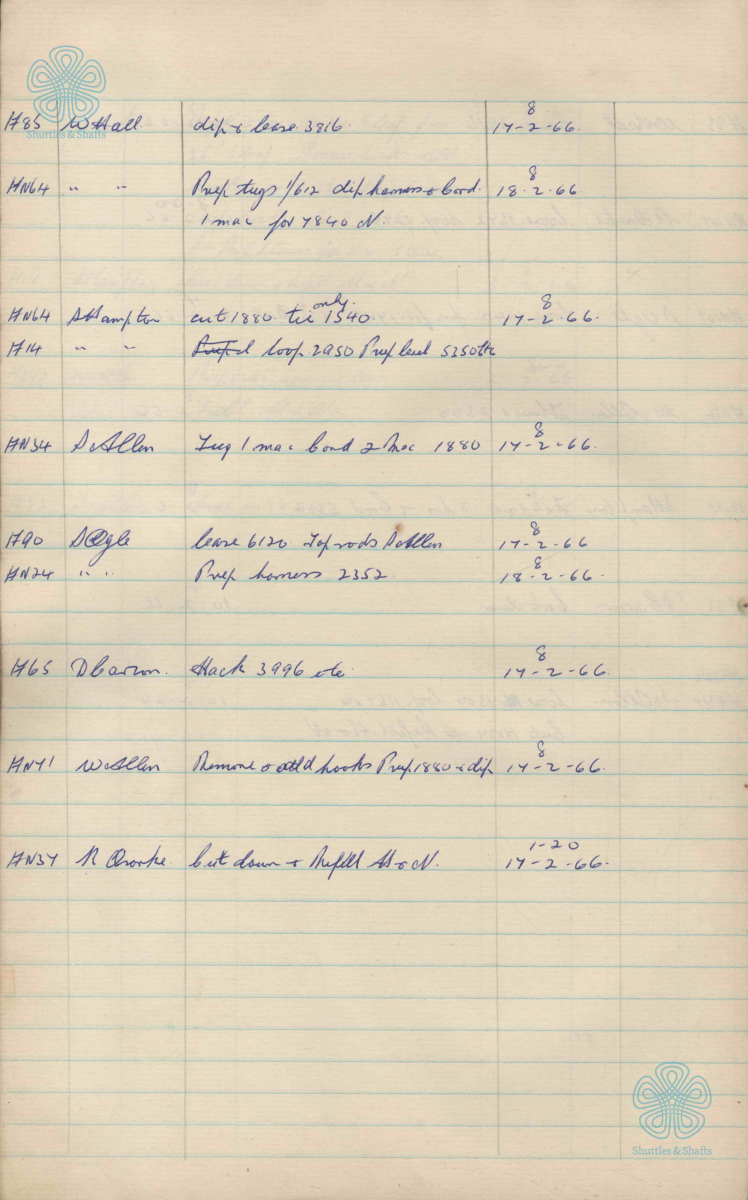 Shuttles & Shafts
8
H85 W Hall dip & lease 3816. 17-2-66.
8
HN64 " " Prep tugs 1/612 dip harness & Cord. 18-2-66
1 mac for 7840 N.
only. 8
HN64 A Hampton cut 1880 tie 1540. 17-2-66.
H14 " " loop 2950 Prep level 5350
8
HN34 D Allen Tug 1 mac Cord 2 Mac 1880 17-2-66.
8
H90 D Ogle lease 6120 Top rods D Allen 17-2-66
8
HN24 " " Prep harness 2352. 18-2-66.
8
H65 D Hack 3996 17-2-66.
8
HN71 W Allen Remove & add hooks Prep 1880 & dip 17-2-66.
1-20
HN37 R Ororke. Cut down & Refill H & N. 17-2-66.
Shuttles & Shafts